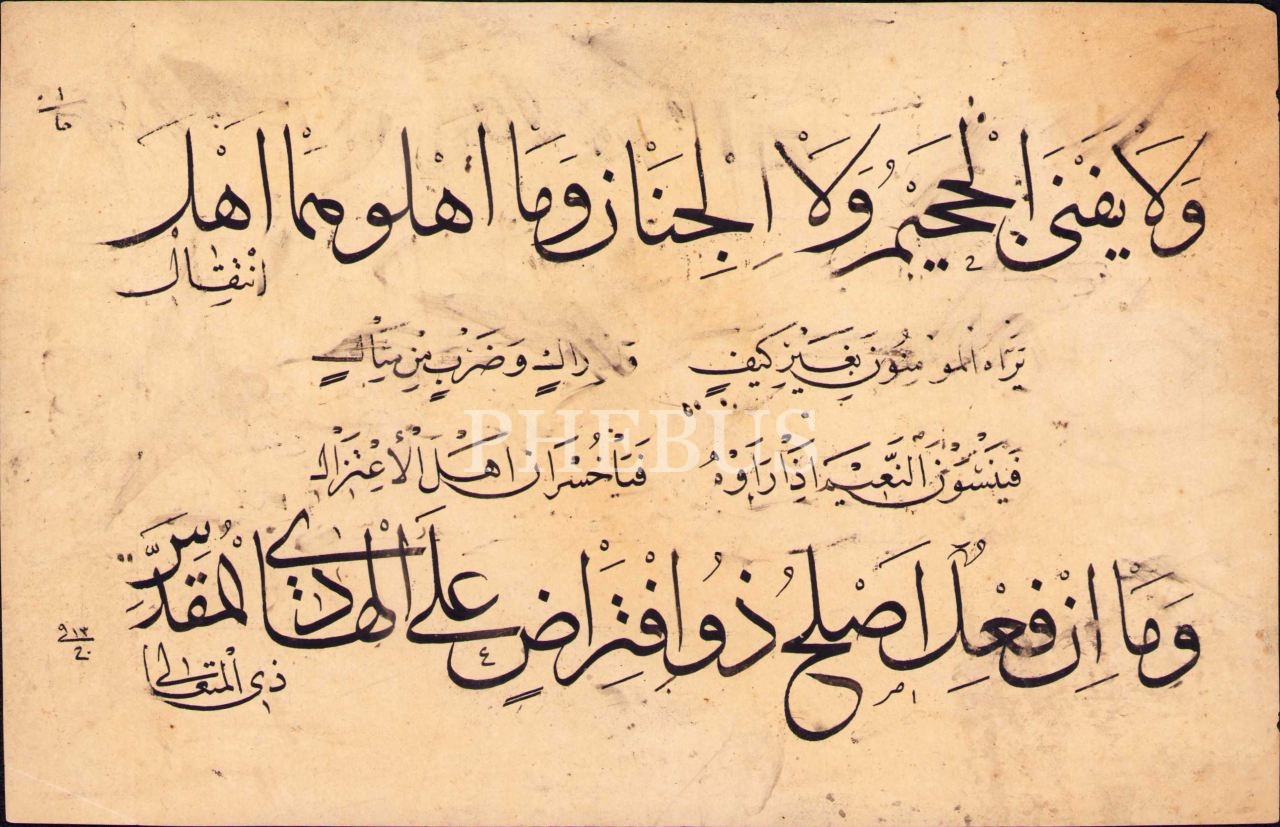 وَلَا يَفْنَى الْجَحِيْمُ وَلَا الْجِنَانُ وَمَا اَهْلُوهُمَا اَهْلُ
اِنْتِقَالِ
يَرَاهُ الْمُؤْمِنُونَ بِغَيْرِ كَيْفٍ وَضَرْبٍ مِنْ مِثَالٍ
فَيَنْسَوْنَ النَّعِيْمَ اِذَا رَاَوْهُ فَيَا خُسْرَانَ اَهْلَ الْاِعْتِزَالِ
وَمَا اِنْ فِعْلٌ اَصْلَحُ ذُو افْتِرَاضٍ عَلَى الْهَادِي الْمُقَدَّسِ
ذِي الْمُتَعَالِي
PHEBUS